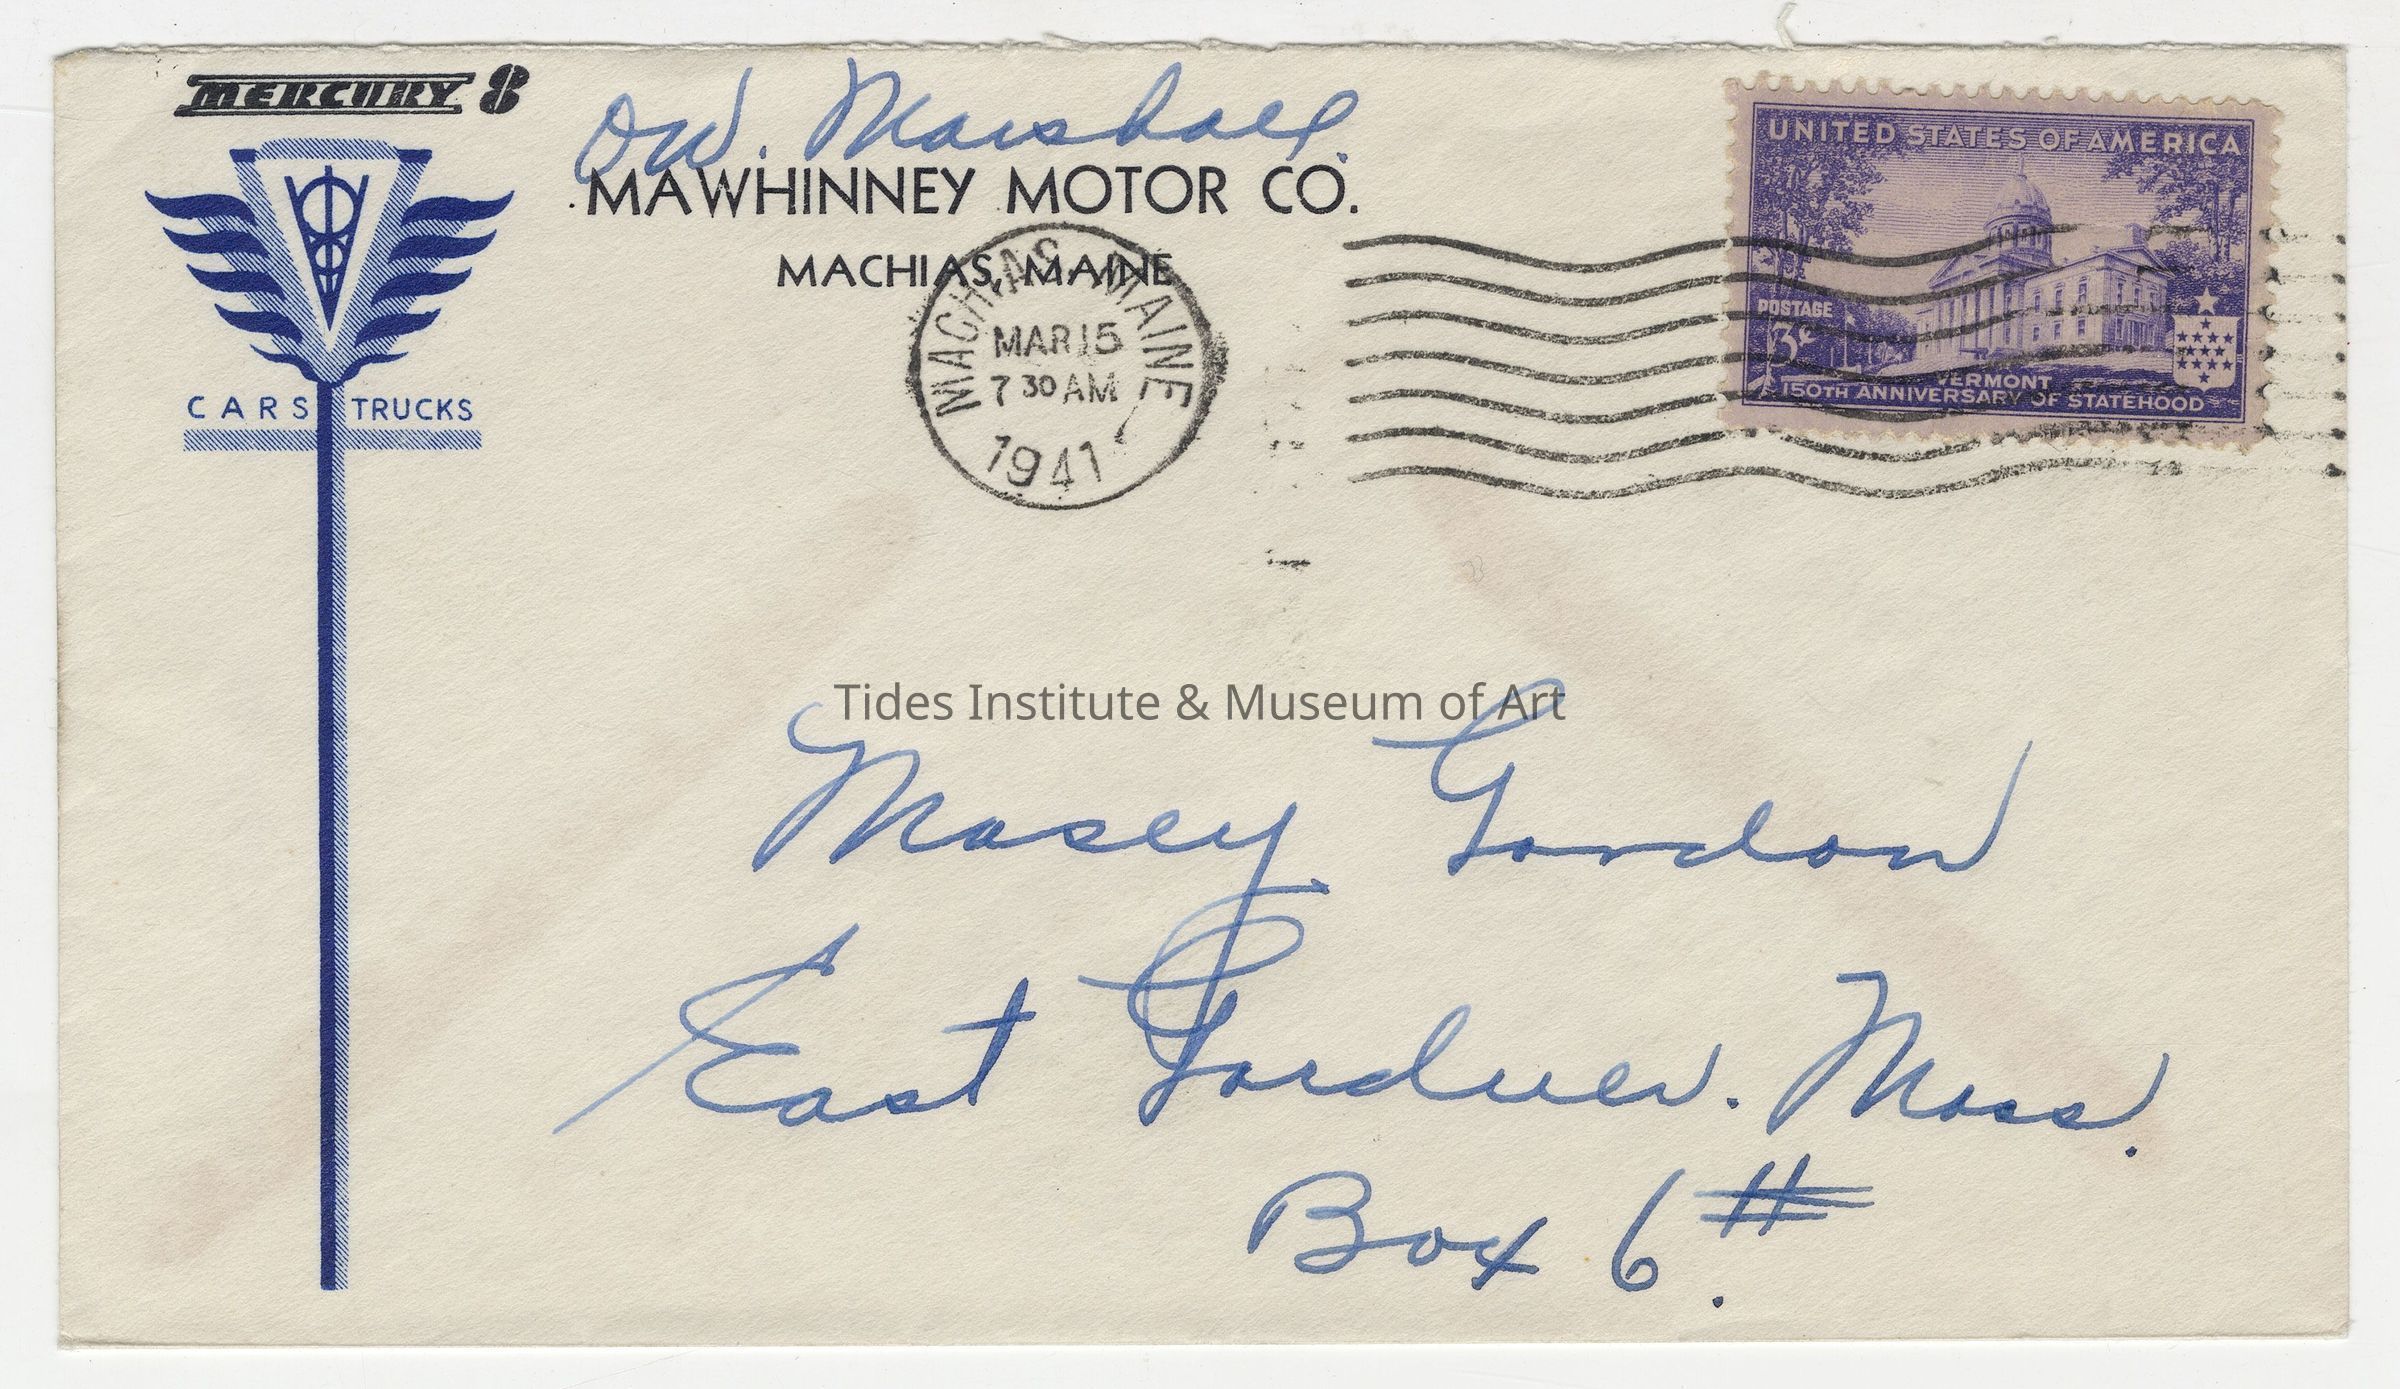 MERCURY 8
D.W. Marshall
MAWHINNEY MOTOR CO.
MACHIAS, MAINE
CARS TRUCKS
MACHIAS MAINE
MAR 15
7 30 AM
1941
UNITED STATES OF AMERICA
POSTAGE
3¢
VERMONT
150TH ANNIVERSARY OF STATEHOOD
Tides Institute & Museum of Art
Masey Gordon
East Gardner. Mass.
Box 6 #.